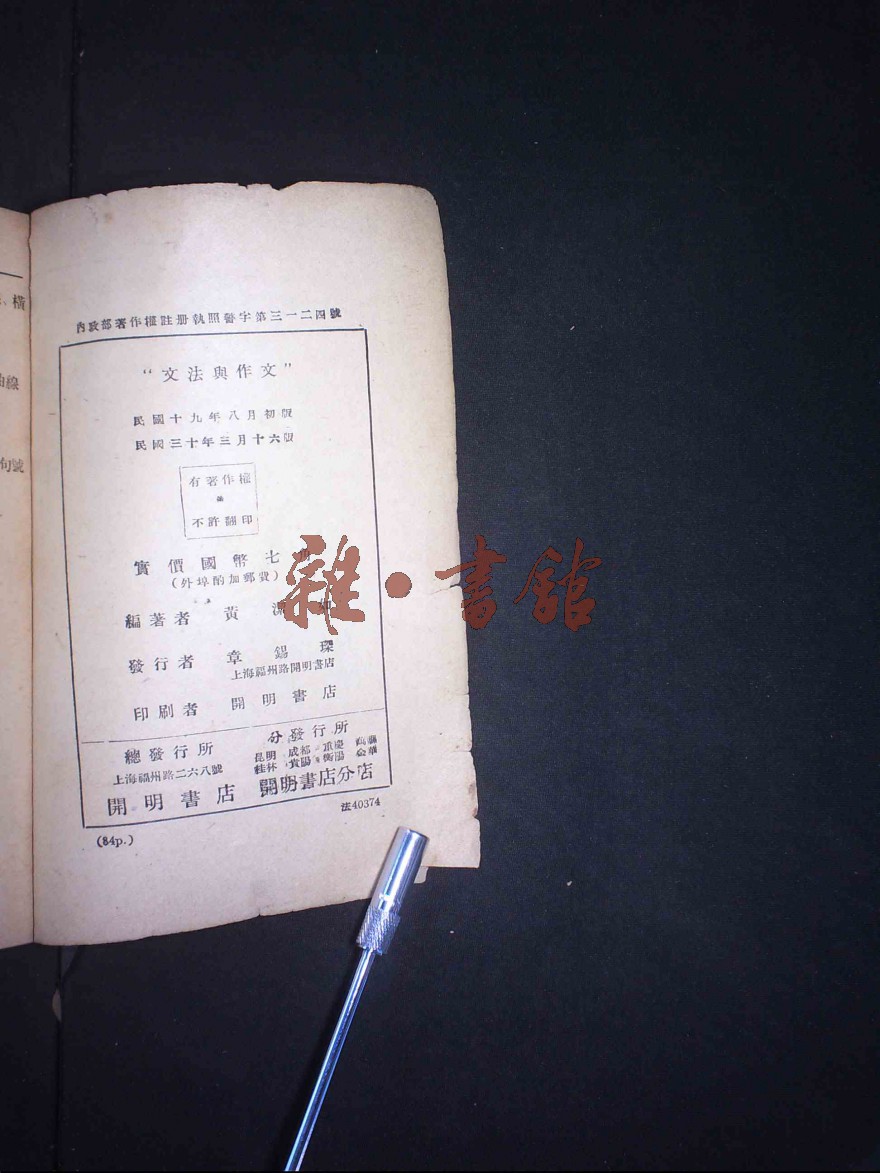 內政部著作權註册執照警字第三一二四號
“文法與作文”
民國十九年八月初版
民國三十年三月十六版
有著作權
不許翻印
實價國幣七
(外埠酌加郵費)
編著者 黃
發行者 章錫琛
上海福州路開明書店
印刷者 開明書店
總發行所
上海福州路二六八號
開明書店
分發行所
昆明 成都 重慶
桂林 貴陽 衡陽 金華
開明書店分店
法40374
(84p.)
橫
線
句號
雜·書館